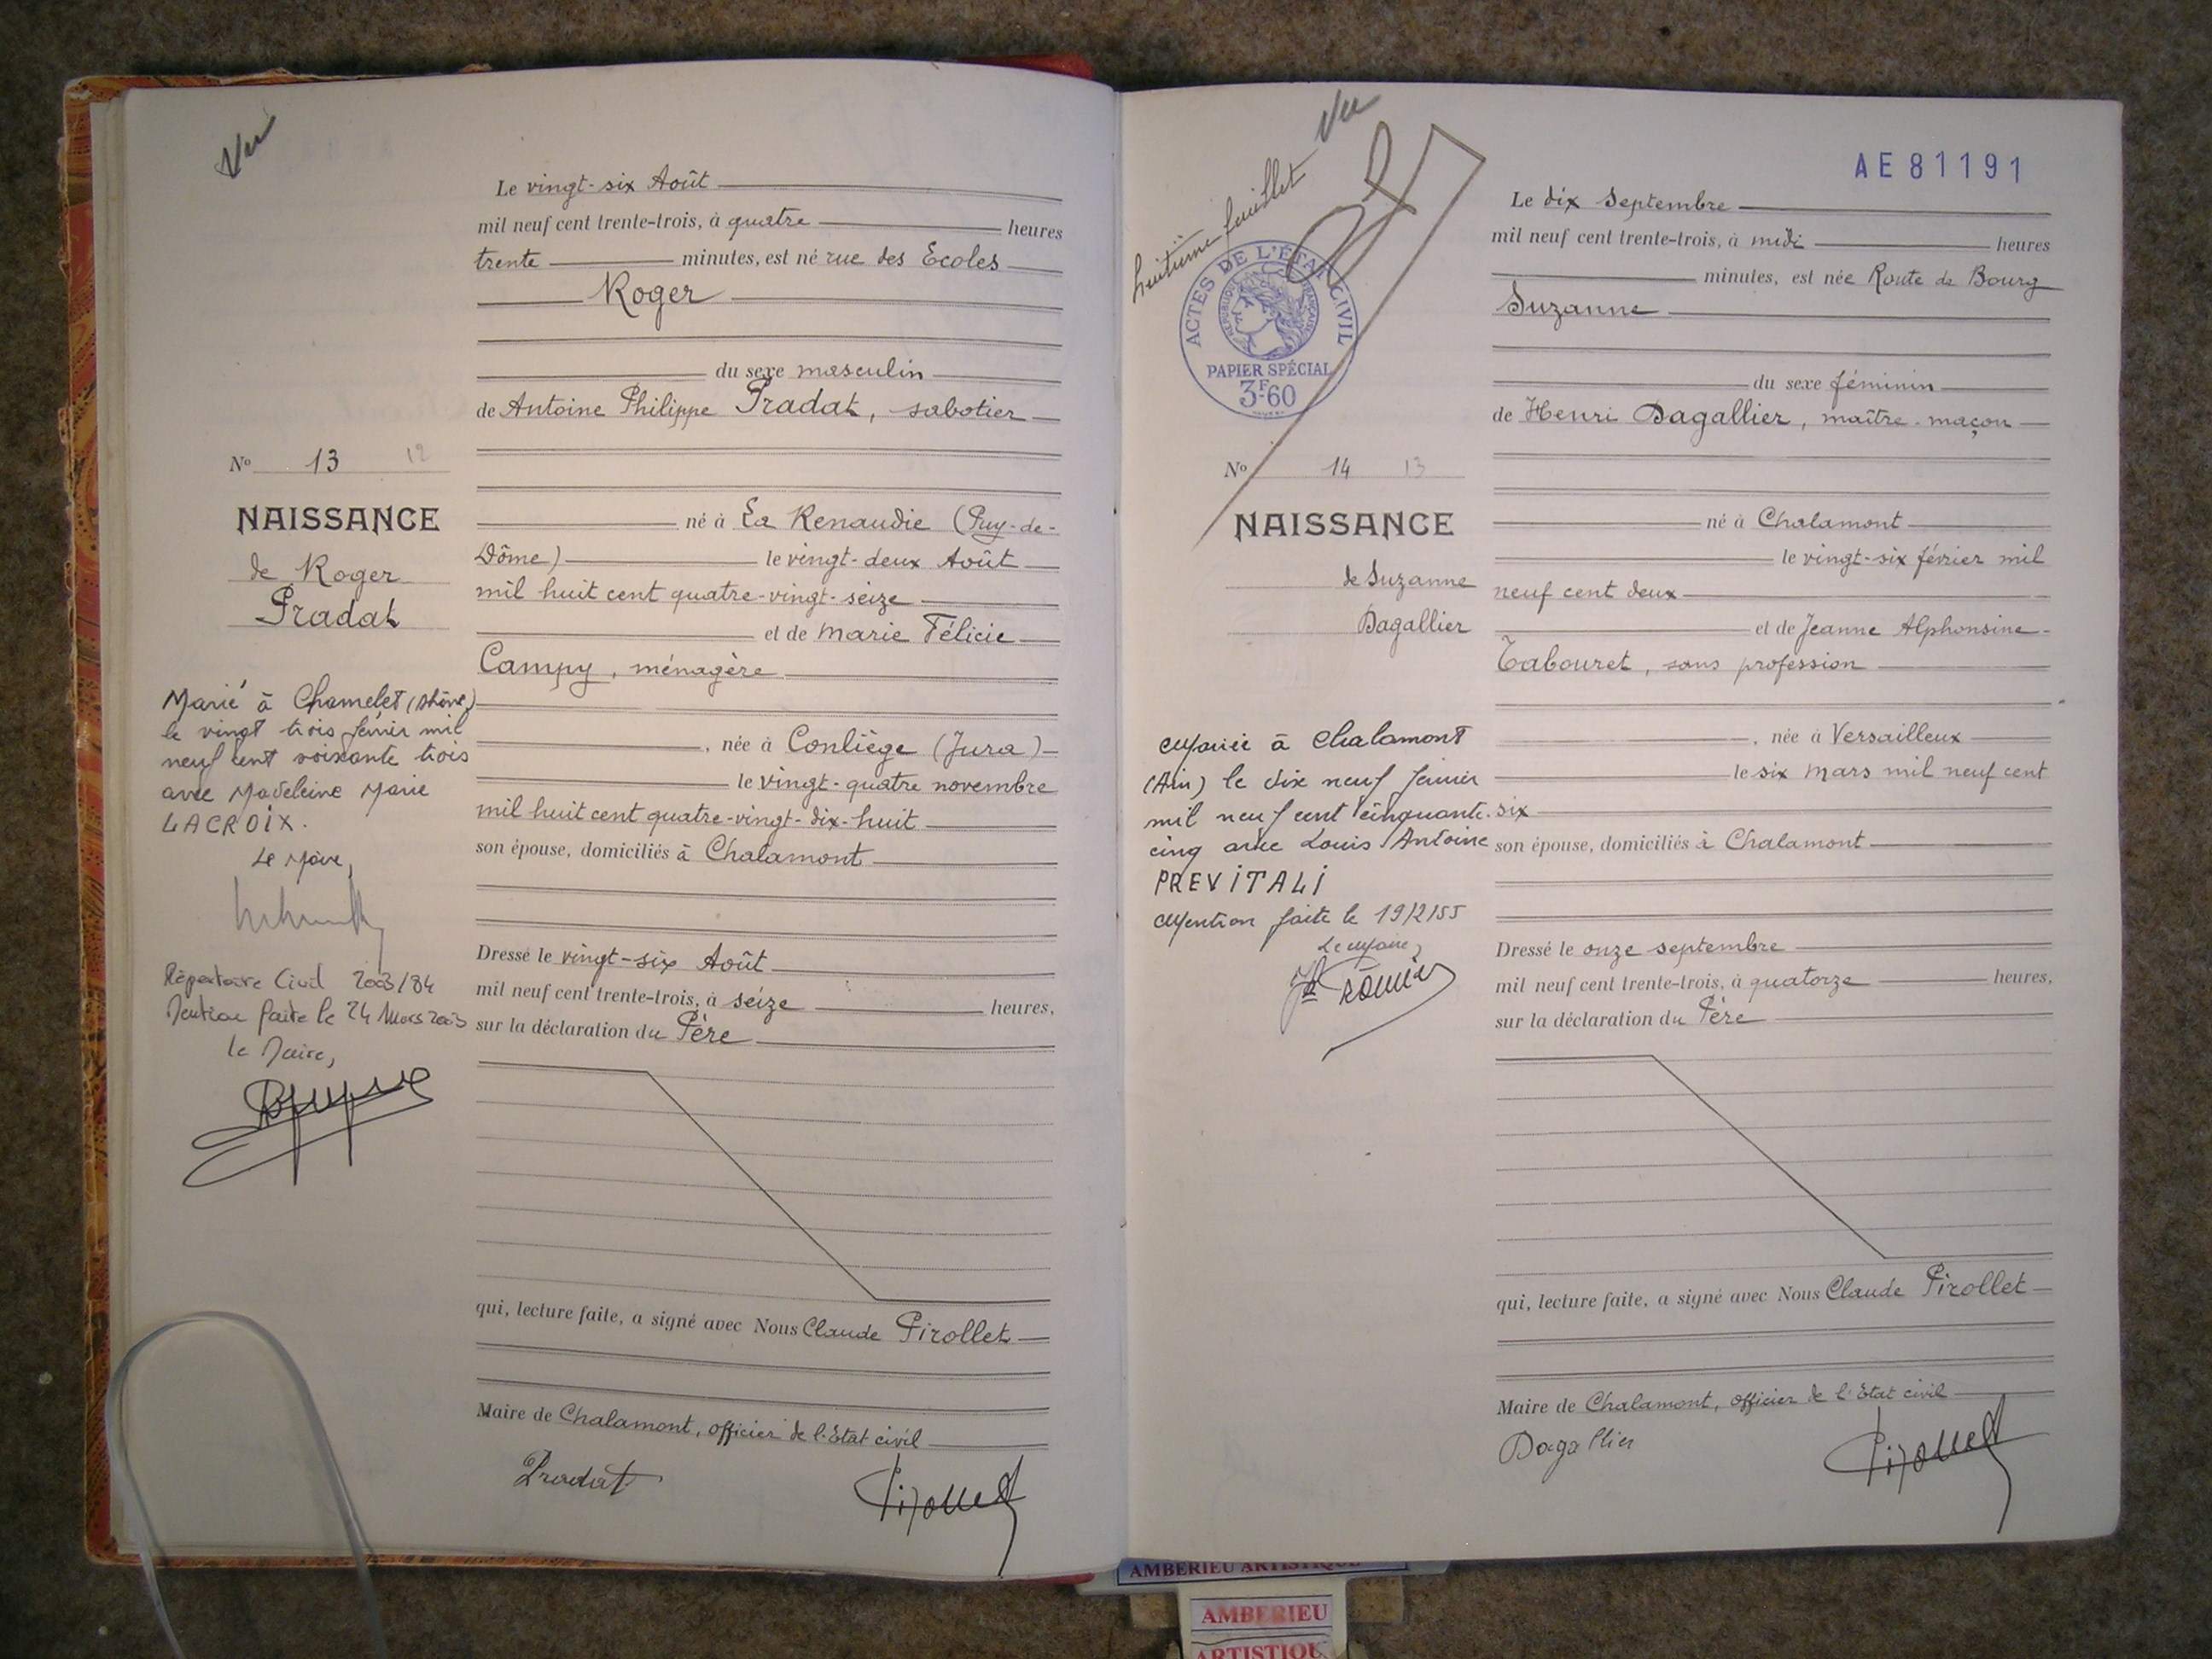 Vu
Le vingt-six Août
mil neuf cent trente-trois, à quatre heures
trente minutes, est né rue des Ecoles
Roger
du sexe masculin
de Antoine Philippe Pradat, sabotier
né à La Renaudie (Puy-de-
Dôme) le vingt-deux Août
mil huit cent quatre-vingt-seize
et de Marie Félicie
Campy, ménagère
, née à Conliège (Jura)
le vingt-quatre novembre
mil huit cent quatre-vingt-dix-huit
son épouse, domiciliés à Chalamont
Dressé le vingt-six Août
mil neuf cent trente-trois, à seize heures,
sur la déclaration du Père
qui, lecture faite, a signé avec Nous Claude Pirollet
Maire de Chalamont, officier de l'Etat civil
Pradat
Nº 13 12
NAISSANCE
de Roger
Pradat
Marié à Chamelet (Rhône)
le vingt trois février mil
neuf cent soixante trois
avec Madeleine Marie
LACROIX.
Le Maire,
Répertoire Civil 2003/84
Mention faite le 24 Mars 2003
le Maire,
huitième feuillet
Vu
ACTES DE L'ÉTAT CIVIL
RÉPUBLIQUE FRANÇAISE
PAPIER SPÉCIAL
3F60
AE 81191
Le dix Septembre
mil neuf cent trente-trois, à midi heures
minutes, est née Route de Bourg
Suzanne
du sexe féminin
de Henri Dagallier, maître-maçon
né à Chalamont
le vingt-six février mil
neuf cent deux
et de Jeanne Alphonsine
Tabouret, sans profession
, née à Versailleux
le six mars mil neuf cent
six
son épouse, domiciliés à Chalamont
Dressé le onze septembre
mil neuf cent trente-trois, à quatorze heures,
sur la déclaration du Père
qui, lecture faite, a signé avec Nous Claude Pirollet
Maire de Chalamont, officier de l'Etat civil
Dagallier
Pirollet
Nº 14 13
NAISSANCE
de Suzanne
Dagallier
Mariée à Chalamont
(Ain) le dix neuf février
mil neuf cent cinquante
cinq avec Louis Antoine
PREVITALI
Mention faite le 19/2/55
Le Maire,
AMBERIEU ARTISTIQUE
AMBERIEU
ARTISTIQU